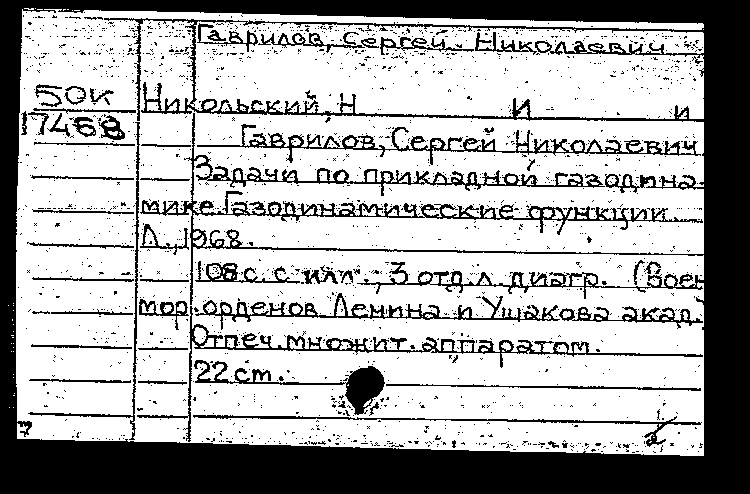 Гаврилов, Сергей Николаевич
50к
17468
Никольский, Н И и
Гаврилов, Сергей Николаевич
Задачи по прикладной газодина-
мике. Газодинамические функции.
Л., 1968.
108 с. с илл., 3 отд. л. диагр. (Воен
мор. орденов Ленина и Ушакова акад.)
Отпеч. множит. аппаратом.
22 cm.
7
2